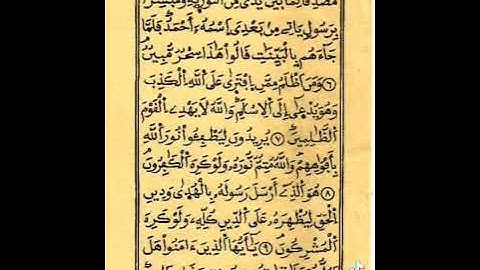 مُصَدِّقًا لِّمَا بَيْنَ يَدَيَّ مِنَ التَّوْرٰيةِ وَمُبَشِّرًا
بِرَسُولٍ يَاتِے مِنۢ بَعْدِىَ اَسْمُهُۥ أَحْمَدُ فَلَمَّا
جَآءَهُم بِالْبَيِّنَٰتِ قَالُوا۟ هَٰذَا سِحْرٌ مُّبِينٌ
٦ وَمَنَ اَظْلَمُ مِمَّنِ اِفْتَرٰى عَلَى اَللَّهِ اِلْكَذِبَ
وَهُوَ يُدْعٰىٓ إِلَى اَلِاسْلَٰمِ وَاللَّهُ لَا يَهْدِے اِلْقَوْمَ
اَلظَّٰلِمِينَ ٧ يُرِيدُونَ لِيُطْفِـُٔوا۟ نُورَ اَللَّهِ
بِأَفْوَٰهِهِمْ وَاللَّهُ مُتِمٌّ نُورَهُۥ وَلَوْ كَرِهَ اَلْكَٰفِرُونَ
٨ هُوَ اَلَّذِےٓ أَرْسَلَ رَسُولَهُۥ بِالْهُدٰى وَدِينِ
اِلْحَقِّ لِيُظْهِرَهُۥ عَلَى اَلدِّينِ كُلِّهِۦ وَلَوْ كَرِهَ
اَلْمُشْرِكُونَ ٩ يَٰٓأَيُّهَا اَلَّذِينَ ءَامَنُوا۟ هَلَ